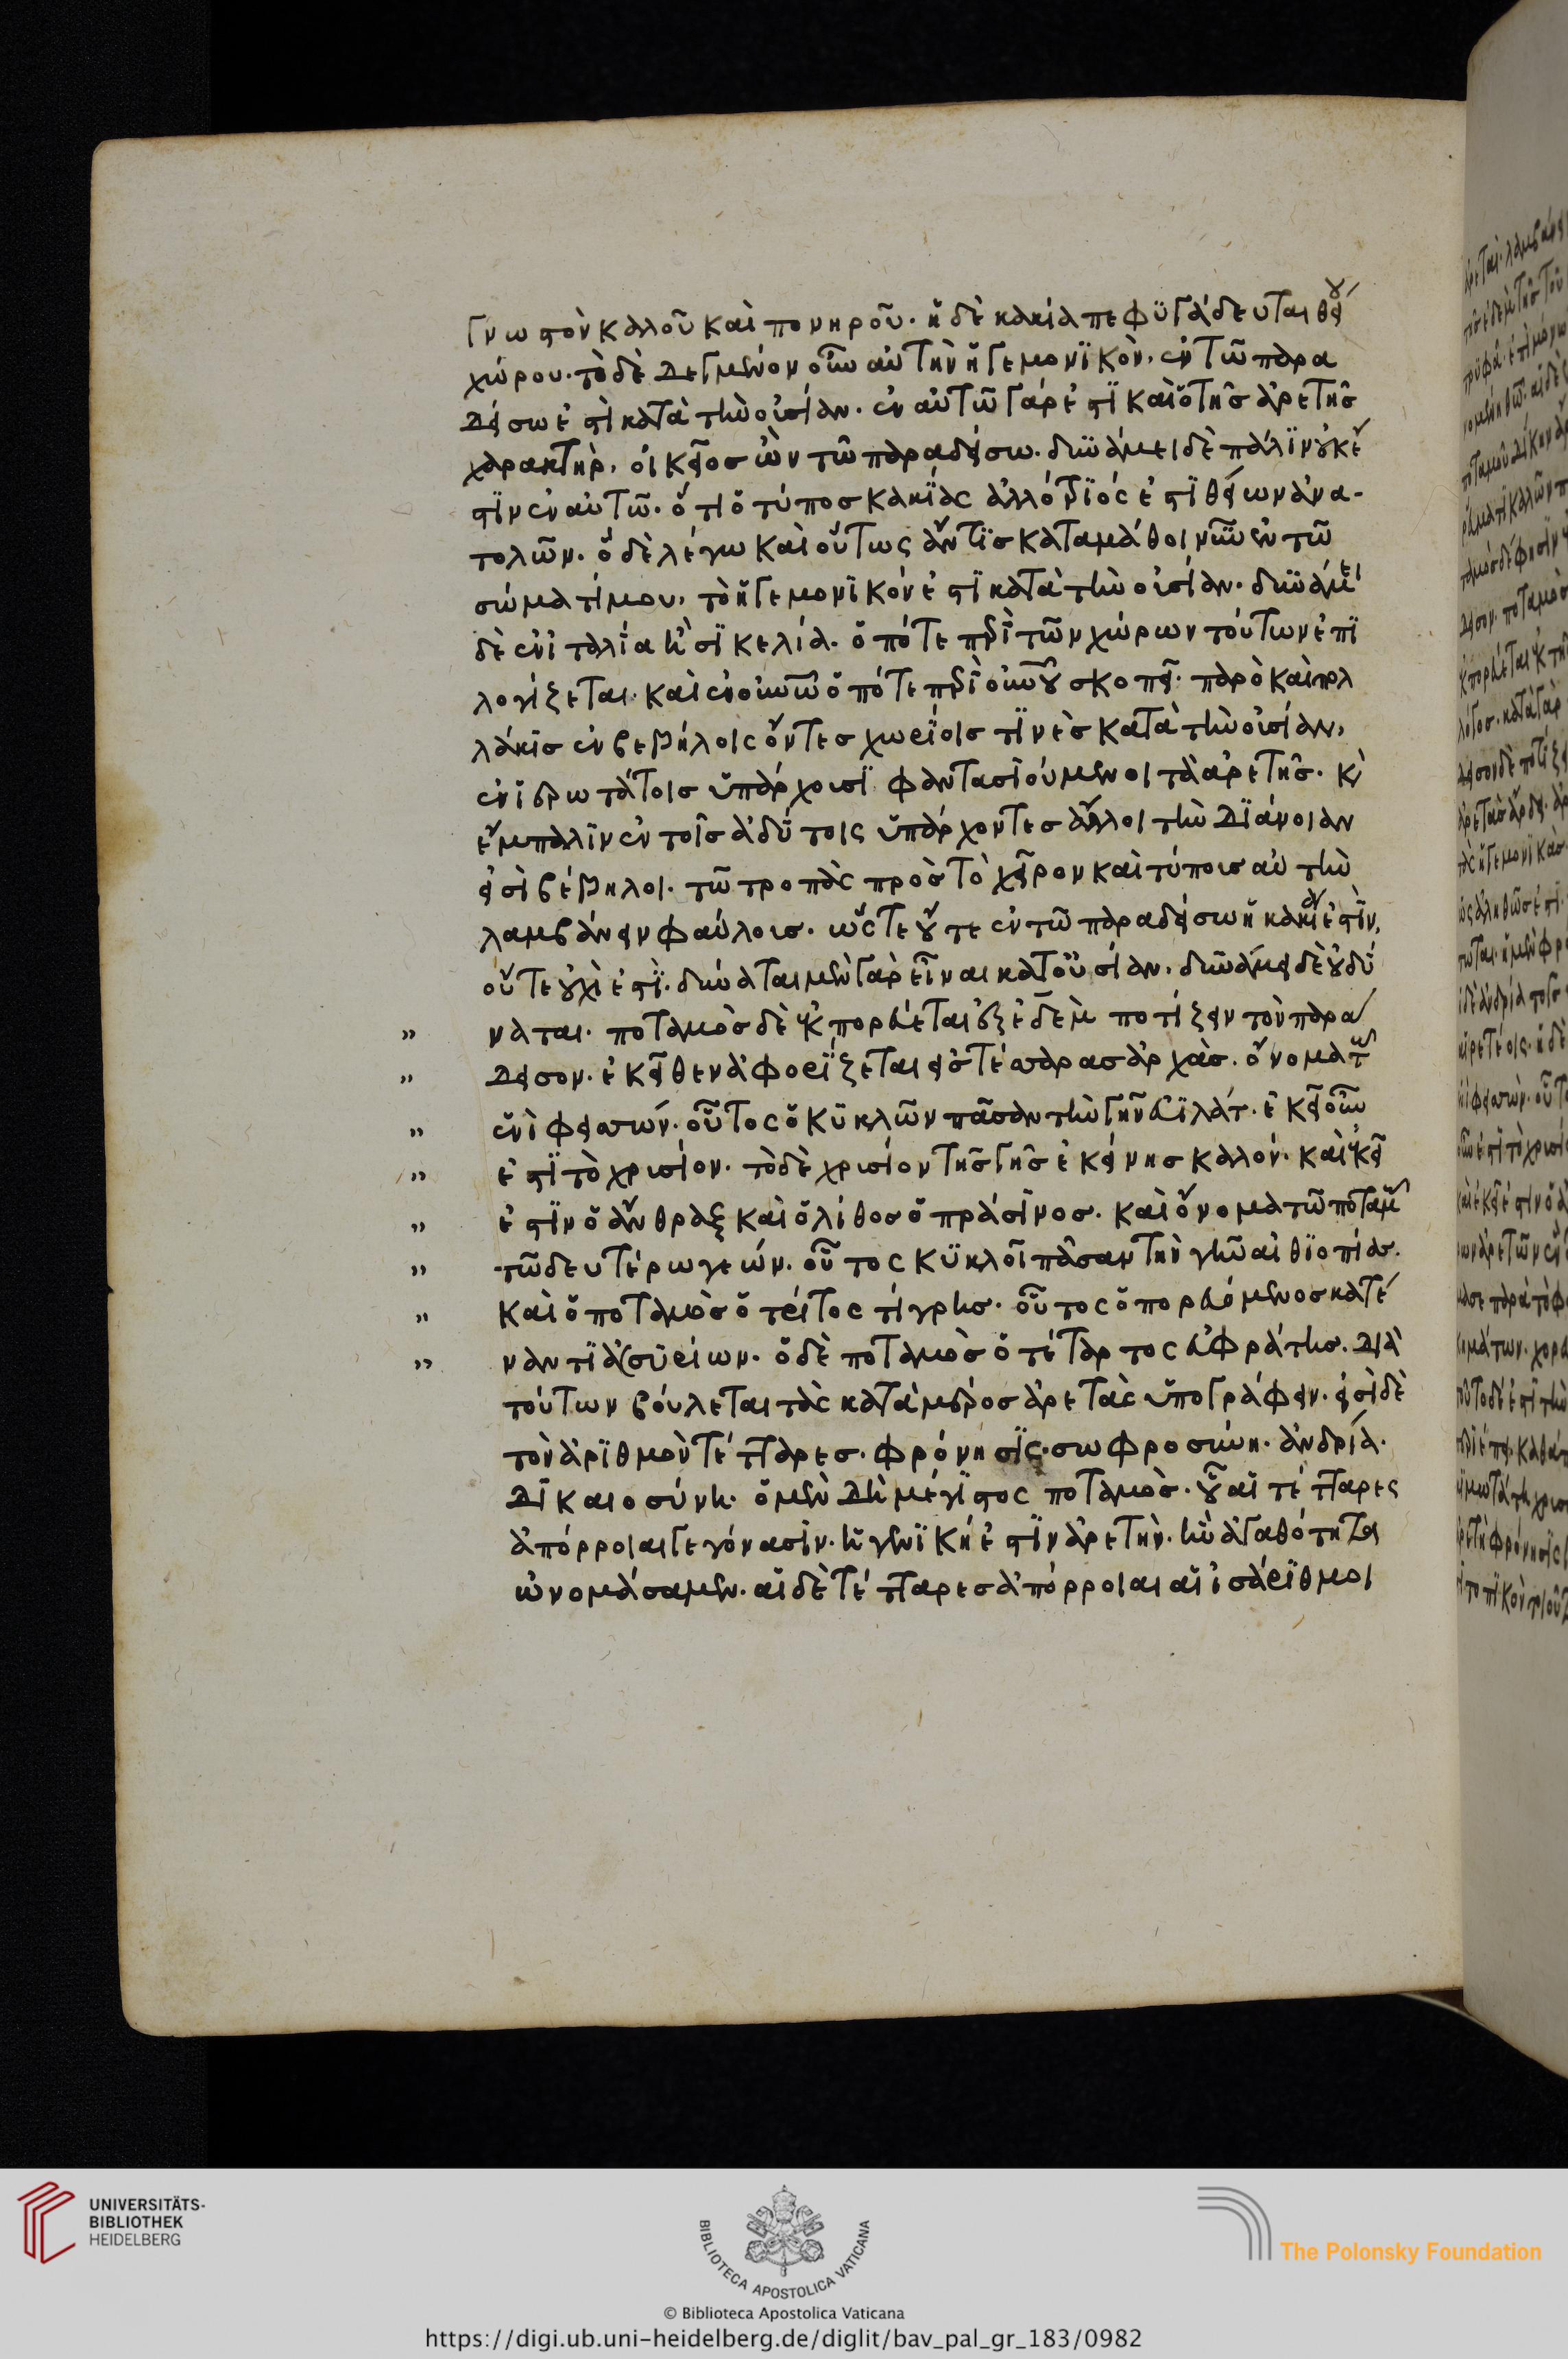 γνωστὸν καλοῦ καὶ πονηροῦ. ἡ δὲ κακία πεφυγάδευται θείου
χώρου. τὸ δὲ δεξάμενον οὖν αὐτὴν ἡγεμονικὸν, ἐν τῶ παρα
δείσω ἐστὶ κατὰ τὴν οὐσίαν. ἐν αὐτῶ γάρ ἐστι καὶ ὁ τῆς ἀρετῆς
χαρακτὴρ, οἰκεῖος ὢν τῶ παραδείσω. δυνάμει δὲ πάλιν οὐκ ἔ
στιν ἐν αὐτῶ. ὅτι ὁ τύπος κακίας ἀλλότριός ἐστι θείων ἀνα-
τολῶν. ὃ δὲ λέγω καὶ οὕτως ἄν τις καταμάθοι νῦν ἐν τῶ
σώματί μου, τὸ ἡγεμονικόν ἐστι κατὰ τὴν οὐσίαν. δυνάμει
δὲ ἐν ἰταλία ἢ σικελία. ὁπότε περὶ τῶν χώρων τούτων ἐπι
λογίζεται. καὶ ἐν οὐρανῶ ὁπότε περὶ οὐρανοῦ σκοπεῖ. παρὸ καὶ πολ
λάκις ἐν βεβήλοις ὄντες χωρίοις τινὲς κατὰ τὴν οὐσίαν,
ἐν ἱερωτάτοις ὑπάρχουσι φαντασιούμενοι τὰ ἀρετῆς. καὶ
ἔμπαλιν ἐν τοῖς ἀδύτοις ὑπάρχοντες ἄλλοι τὴν διάνοιαν
εἰσὶ βέβηλοι. τῶ τροπὰς πρὸς τὸ χεῖρον καὶ τύπους αὐτὴν
λαμβάνειν φαύλους. ὥστε οὔτε ἐν τῶ παραδείσω ἡ κακία ἐστὶν,
οὔτε οὐχὶ ἐστι. δύναται μὲν γὰρ εἶναι κατ' οὐσίαν. δυνάμει δὲ οὐ δύ
" ναται. ποταμὸς δὲ ἐκπορεύεται ἐξ ἐδὲμ ποτίζειν τὸν παρά
" δεισον. ἐκεῖθεν ἀφορίζεται εἰς τέσσαρας ἀρχάς. ὄνομα τῶ
" ἑνὶ φεισών. οὗτος ὁ κυκλῶν πᾶσαν τὴν γῆν εὐϊλάτ. ἐκεῖ οὖ
" ἐστι τὸ χρυσίον. τὸ δὲ χρυσίον τῆς γῆς ἐκείνης καλόν. καὶ ἐκεῖ
" ἐστιν ὁ ἄνθραξ καὶ ὁ λίθος ὁ πράσινος. καὶ ὄνομα τῶ ποταμῶ
" τῶ δευτέρω γεών. οὗτος κυκλοῖ πᾶσαν τὴν γῆν αἰθιοπίας.
" καὶ ὁ ποταμὸς ὁ τρίτος τίγρης. οὗτος ὁ πορευόμενος κατέ
" ναντι ἀσσυρίων. ὁ δὲ ποταμὸς ὁ τέταρτος εὐφράτης. διὰ
τούτων βούλεται τὰς κατὰ μέρος ἀρετὰς ὑπογράφειν. εἰσὶ δὲ
τὸν ἀριθμὸν τέτταρες. φρόνησις. σωφροσύνη. ἀνδρία.
δικαιοσύνη. ὁ μὲν δὴ μέγιστος ποταμὸς. οὗ αἱ τέτταρες
ἀπόρροιαι γεγόνασιν. ἡ γενική ἐστιν ἀρετὴν. ἣν ἀγαθότητα
ὠνομάσαμεν. αἱ δὲ τέτταρες ἀπόρροιαι αἱ ἰσάριθμοι
UNIVERSITÄTS-
BIBLIOTHEK
HEIDELBERG
BIBLIOTECA APOSTOLICA VATICANA
The Polonsky Foundation
© Biblioteca Apostolica Vaticana
https://digi.ub.uni-heidelberg.de/diglit/bav_pal_gr_183/0982